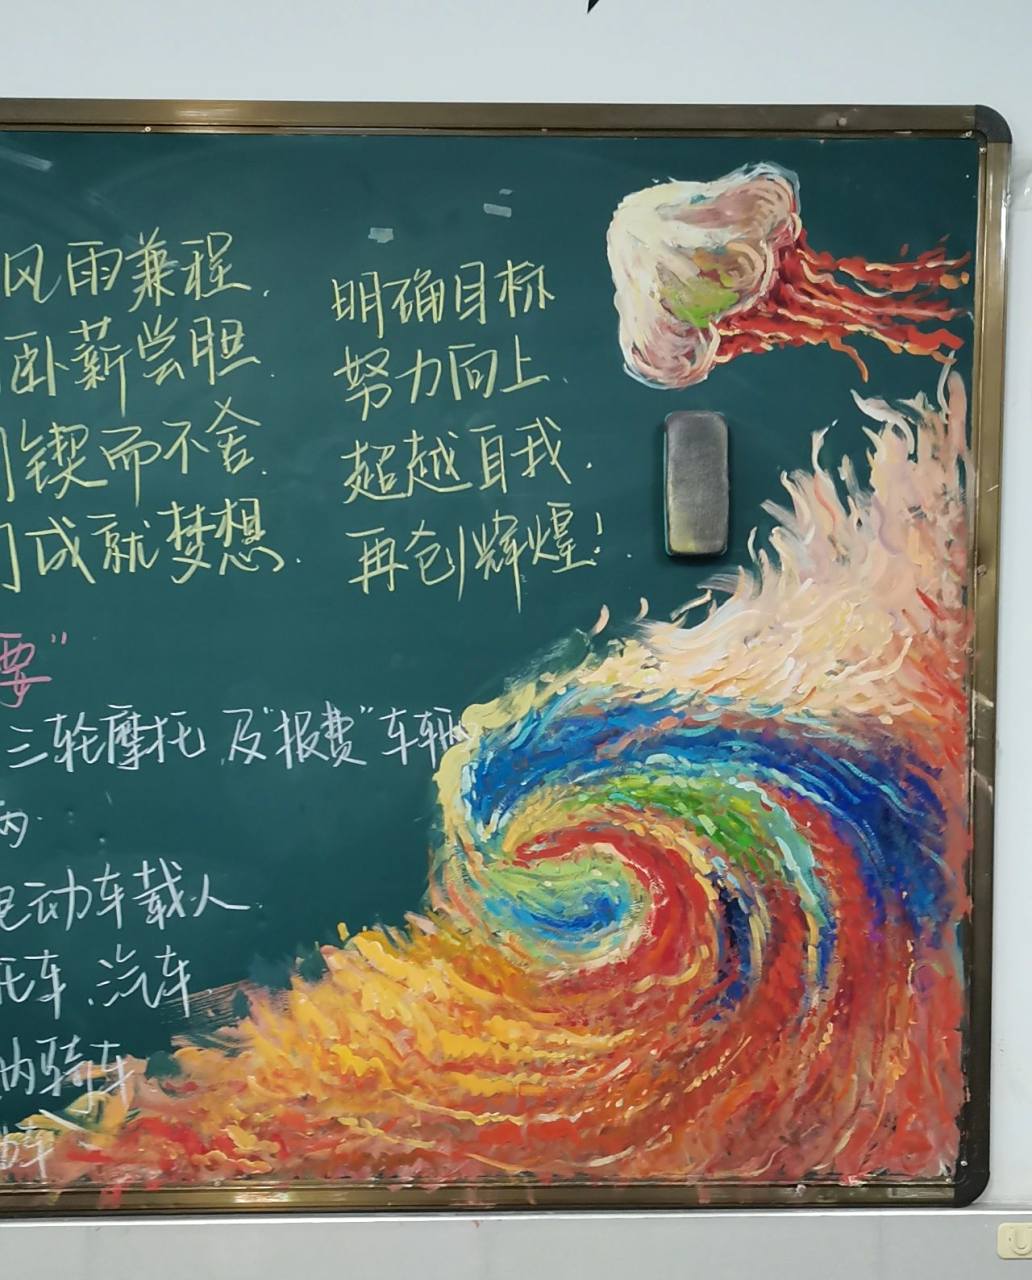 风雨兼程.
卧薪尝胆.
锲而不舍.
们成就梦想.
明确目标
努力向上.
超越自我.
再创辉煌!
要"
三轮摩托及"报费"车辆
内.
电动车载人.
托车、汽车
内骑车
动车